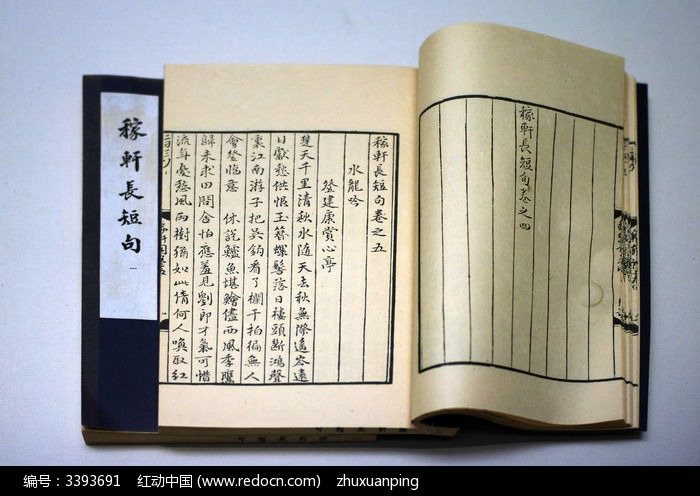 稼軒長短句 一
稼軒長短句卷之四
稼軒長短句卷之五
水龍吟
登建康賞心亭
楚天千里清秋水隨天去秋無際遙岑遠
目獻愁供恨玉簪螺髻落日樓頭斷鴻聲
裏江南游子把吳鈎看了欄干拍徧無人
會登臨意 休說鱸魚堪鱠儘西風季鷹
歸未求田問舍怕應羞見劉郎才氣可惜
流年憂愁風雨樹猶如此倩何人喚取紅
编号：3393691 红动中国 (www.redocn.com) zhuxuanping